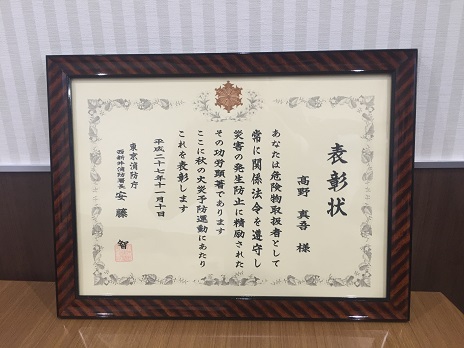 表彰状
高野 真吾 様
あなたは危険物取扱者として
常に関係法令を遵守し
災害の発生防止に精励された
その功労顕著であります
ここに秋の火災予防運動にあたり
これを表彰します
平成二十七年十一月十日
東京消防庁
西新井消防署長 安藤 智